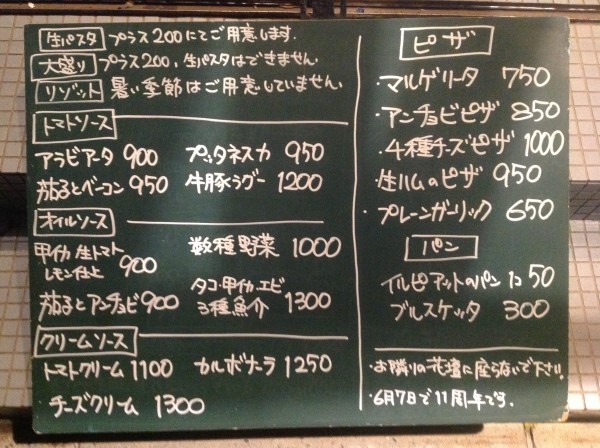 生パスタ プラス200にてご用意します.
大盛り プラス200, 生パスタはできません.
リゾット 暑い季節はご用意していません.
トマトソース
アラビアータ 900 プッタネスカ 950
茄子とベーコン 950 牛豚ラグー 1200
オイルソース
甲イカ/生トマト
レモン仕上 900
数種野菜 1000
茄子とアンチョビ 900
タコ・甲イカ・エビ
3種魚介 1300
クリームソース
トマトクリーム 1100 カルボナーラ 1250
チーズクリーム 1300
ピザ
・マルゲリータ 750
・アンチョビピザ 850
・4種チーズピザ 1000
・生ハムのピザ 950
・プレーンガーリック 650
パン
イルピアットのパン 1コ 50
ブルスケッタ 300
・お隣りの花壇に座らないで下さい.
・6月7日で11周年です.